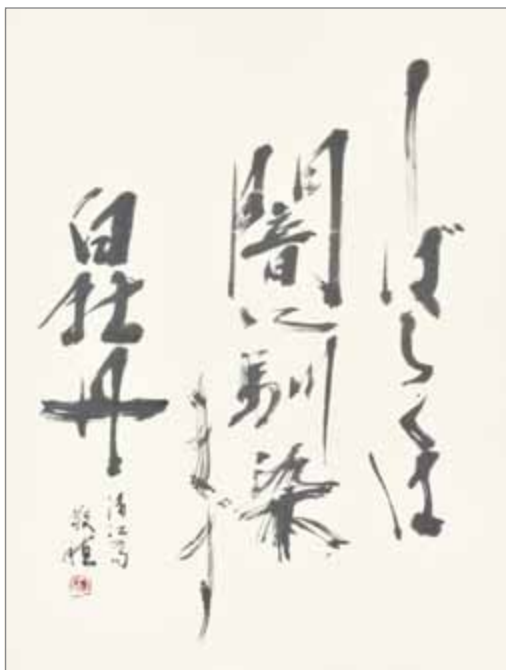 しばらくは
闇に馴染
まず
白牡丹